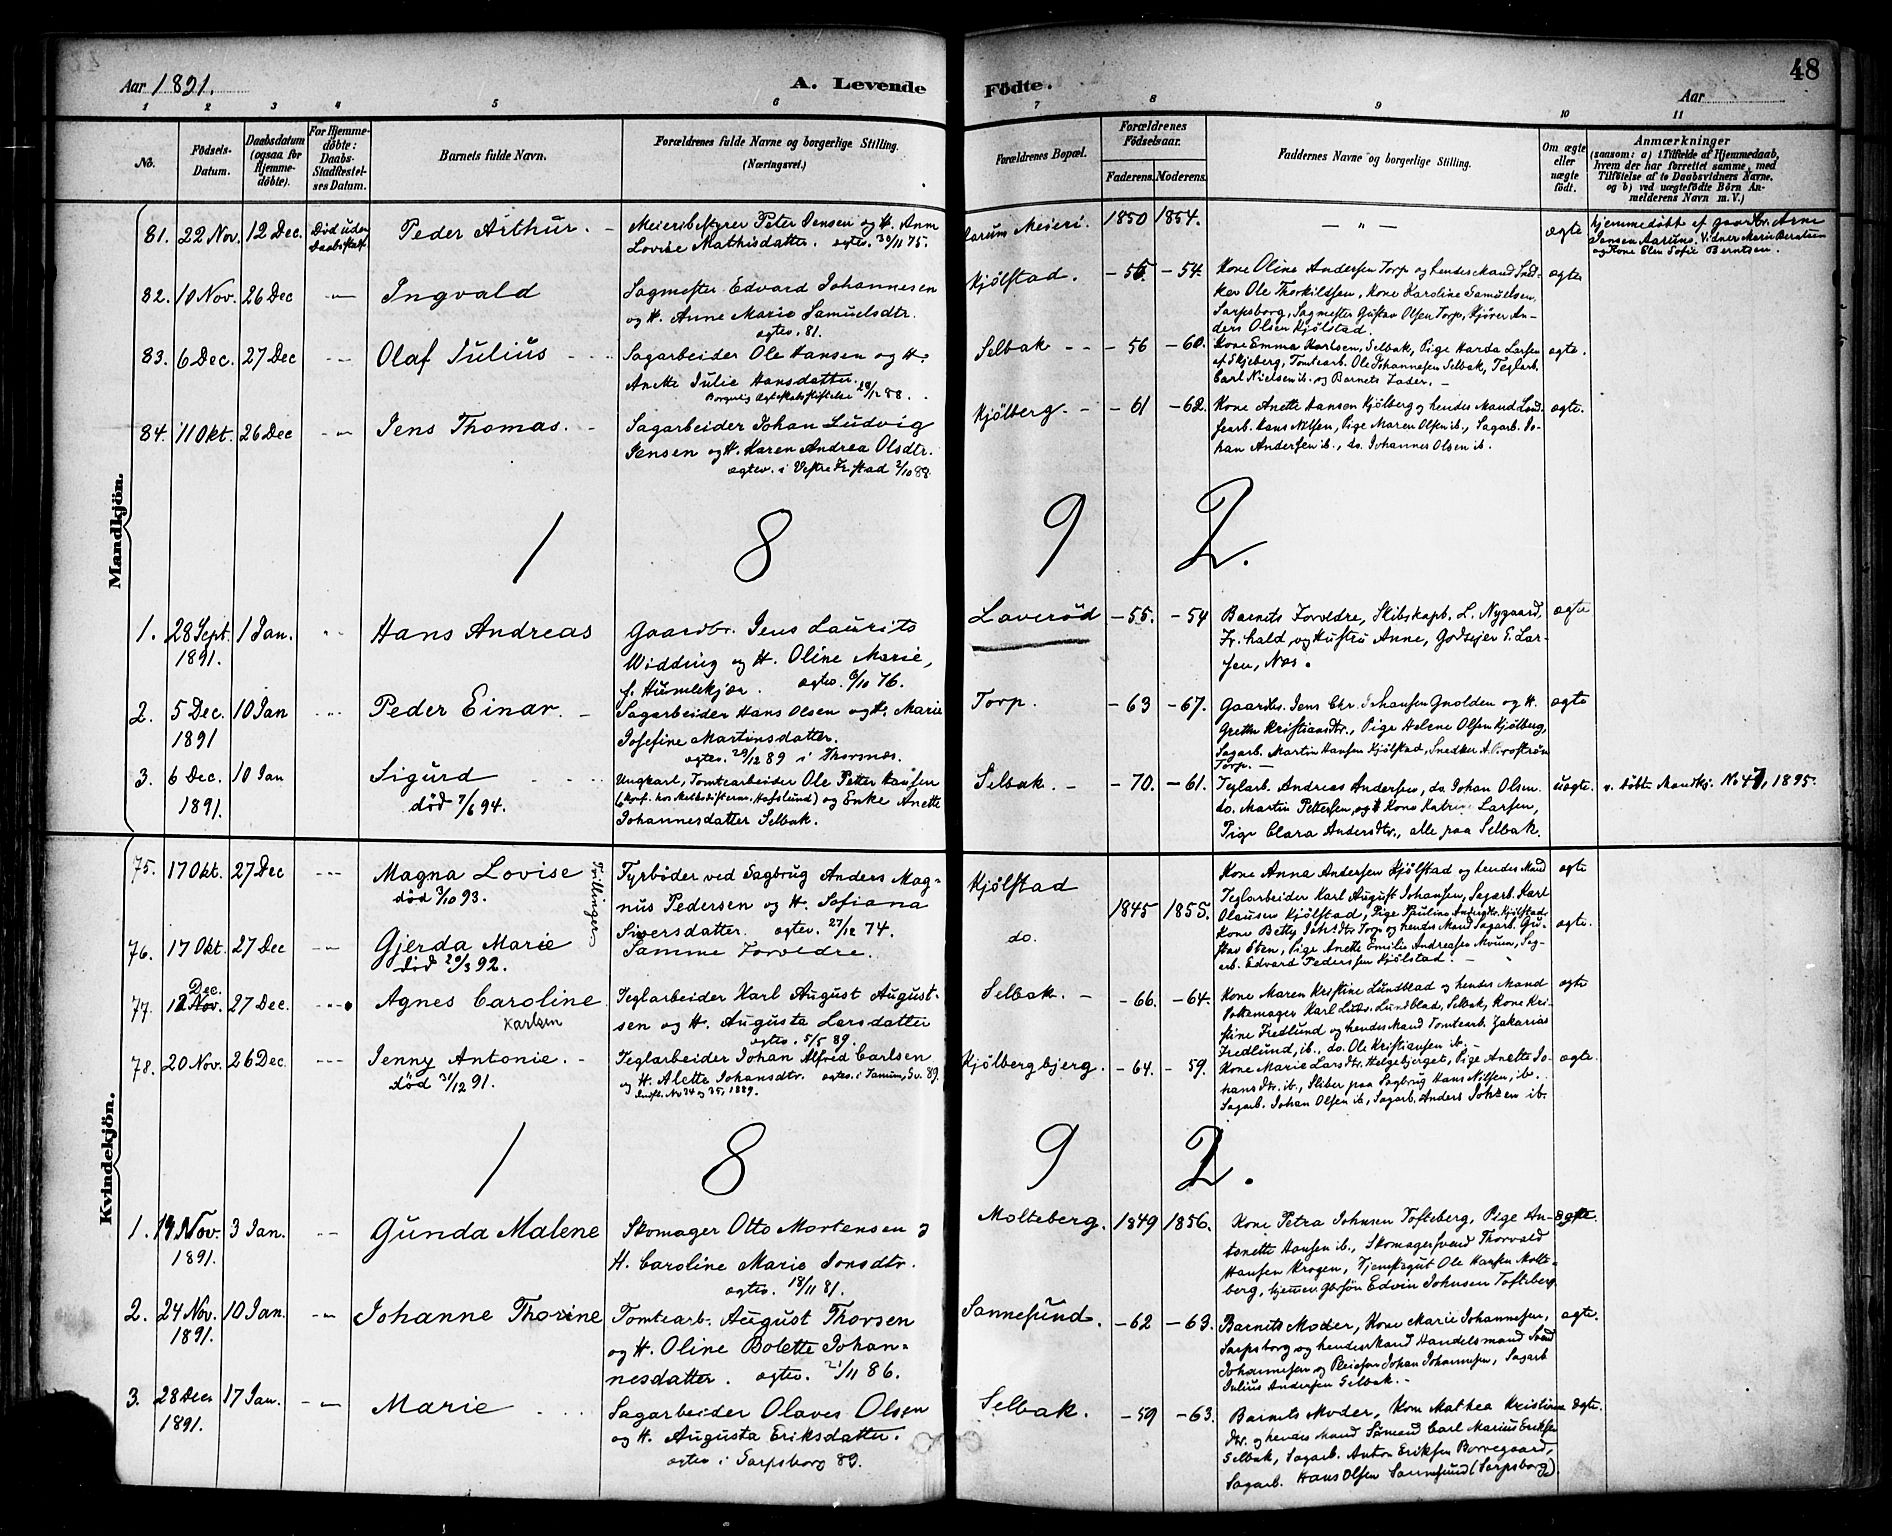 Aar 1891.
A. Levende
Födte.
48
Aar
1 2 3 4 5 6 7 8 9 10 11
No.
Födsels-Datum.
Daabsdatum (ogsaa for Hjemme-döbte).
For Hjemme-döbte: Daabs-Stadfæstel-ses Datum.
Barnets fulde Navn.
Forældrenes fulde Navne og borgerlige Stilling. (Næringsvei.)
Forældrenes Bopæl.
Forældrenes Födselsaar.
Faderens. Moderens.
Faddernes Navne og borgerlige Stilling.
Om ægte eller uægte födt.
Anmærkninger
(saasom: a) i Tilfælde af Hjemmedaab,
hvem der har forrettet samme, med
Tilföielse af to Daabsvidners Navne,
og b) ved uægtefödte Börn An-
melderens Navn m. V.)
Mandkjön.
81. 22 Nov. 12 Dec. Död uden Daabsstadf. Peder Arthur. Meieribestyrer Peter Jensen og H. Anne
Lovise Mathisdatter. ægtev. 30/11 75.
Aarum Meieri. 1850 1854. — „ — ægte
hjemmedöbt af gaardbr. Arne
Jensen Aarum. Vidner Marie Berntsen
og Kone Elen Sofie Berntsen.
82. 10 Nov. 26 Dec Ingvald Sagmester Edvard Johannesen
og H. Anne Marie Samuelsdtr.
ægtev. 81.
Kjölstad. —55. —54. Kone Oline Andersen Torp og hendes Mand Snedker
Ole Thorkildsen, Kone Karoline Samuelsen
Sarpsborg, Sagmester Gustav Olsen Torp, Kjörer An-
ders Olsen Kjölstad. ægte
83. 6 Dec. 27 Dec Olaf Julius Sagarbeider Ole Hansen og H.
Anette Julie Hansdatter.
Borgerlig Ægteskabsstiftelse 29/12 88.
Selbak —56 —60. Kone Emma Karlsen, Selbak, Pige Harda Larsen
af Skjeberg, Tomtearb. Ole Johannesen Selbak, Teglarb.
Carl Nielsen ib. og Barnets Fader. ægte.
84. 11 Okt. 26 Dec Jens Thomas. Sagarbeider Johan Ludvig
Jensen og H. Karen Andrea Olsdtr.
ægtev. i Vestre Fr.stad 2/10 88.
Kjölberg. —61 —62. Kone Anette Hansen Kjölberg og hendes Mand
Hans Nilsen, Pige Maren Olsen ib., Sagarb. Jo-
han Andersen ib., do. Johannes Olsen ib. ægte.
1 8 9 2.
1. 28 Sept. 1891. 1 Jan. Hans Andreas Gaardbr. Jens Laurits
Widding og H. Oline Marie,
f. Humlekjær. ægtev. 6/10 76.
Laveröd —55. —54 Barnets Forældre, Skibskapt. L. Nygaard,
Fr.hald og Hustru Anne, Godsejer E. Lar-
sen, Næs. ægte
2. 5 Dec. 1891 10 Jan Peder Einar. Sagarbeider Hans Olsen og H. Marie
Josefine Martinsdatter.
ægtev. 29/12 89 i Thorsnæs.
Torp. —63 —67. Gaardbr. Jens Chr. Johansen Gnolden og H.
Grethe Kristiansdtr., Pige Helene Olsen Kjölberg,
Sagarb. Martin Hansen Kjölstad, Snedker
Torp. ægte
3. 6 Dec. 1891. 10 Jan Sigurd
död 7/6 94.
Ungkarl, Tomtearbeider Ole Peter Hansen
og Enke Anette
Johannesdatter Selbak.
Selbak. —70. —61. Teglarb. Andreas Andersen, do. Johan Olsen.
do. Martin Pettersen, og Kone Katrine Larsen,
Pige Clara Andersdtr., alle paa Selbak.
uægte. v. döbte Mandkj. No 47, 1895.
Kvindekjön.
75. 17 Okt. 27 Dec Magna Lovise
död 3/10 93.
Tvillinger
Fyrböder ved Sagbrug Anders Mag-
nus Pedersen og H. Sofiana
Siversdatter. ægtev. 27/12 74.
Kjölstad 1845 1855. Kone Anna Andersen Kjölstad og hendes Mand
Teglarbeider Karl August Johansen, Sagarb. Karl
Olausen Kjölstad, Pige Pauline Andersdtr. Kjölstad ægte
76. 17 Okt. 27 Dec Gjerda Marie
död 20/3 92.
Samme Forældre.
do. Kone Betty Johsdtr Torp og hendes Mand Sagarb. Gu-
stav Sten, Pige Anette Emilie Andreasen Mvum, Sag-
arb. Edvard Pedersen Kjölstad. ægte.
77. 12 Nov. Dec. 27 Dec. Agnes Caroline
Karlsen
Teglarbeider Karl August August-
sen og H. Augusta Larsdatter
ægtev. 5/5 89.
Selbak. —66. —64. Kone Maren Kristine Lundblad og hendes Mand
Pottemager Karl Ludv. Lundblad, Selbak, Kone Kri-
stine Fredlund og hendes Mand Tomtearb. Zakarias
Fredlund, ib., do. Ole Kristiansen ib. ægte
78. 20 Nov. 26 Dec. Jenny Antonie.
död 31/12 91.
Teglarbeider Johan Alfred Carlsen
og H. Alette Johansdtr. ægtev. i Tanum, Sv. 89.
Indfl. No 34 og 35, 1889.
Kjölbergbjerg. —64. —59. Kone Marie Larsdtr. Helgebjerget, Pige Anette Jo-
hansdtr. ib., Sliber paa Sagbrug Hans Nilsen, ib.
Sagarb. Johan Olsen ib., Sagarb. Anders Johsen ib. ægte.
1 8 9 2.
1. 19 Nov. 1891. 3 Jan. Gunda Malene Skomager Otto Mortensen og
H. Caroline Marie Jonsdtr.
ægtev. 18/11 81.
Molteberg. 1849 1856. Kone Petra Johnsen Tofteberg, Pige An-
tonette Hansen ib., Skomagersvend Thorvald
Hansen Krogen, Tjenestegut Ole Hansen Molte-
berg, Edvin Johnsen Tofteberg ægte.
2. 24 Nov. 1891. 10 Jan. Johanne Thorine Tomtearb. August Thorsen
og H. Oline Bolette Johan-
nesdatter. ægtev. 21/11 86.
Sannesund. —62 —63. Barnets Moder, Kone Marie Johannesen,
Sarpsborg og hendes Mand Handelsmand
Johannesen og Johan Johannesen, Sagarb
Julius Andersen Selbak. ægte.
3. 28 Dec. 1891. 17 Jan. Marie Sagarbeider Olaves Olsen
og H. Augusta Eriksdatter.
ægtev. i Sarpsborg 89.
Selbak. —59 —63. Barnets Moder, Kone Mathea Kristians
dtr. og hendes Mand Sömand Carl Marius Eriksen
Selbak, Sagarb. Anton Eriksen Borregaard,
Sagarb. Hans Olsen Sannesund (Sarpsborg). ægte.